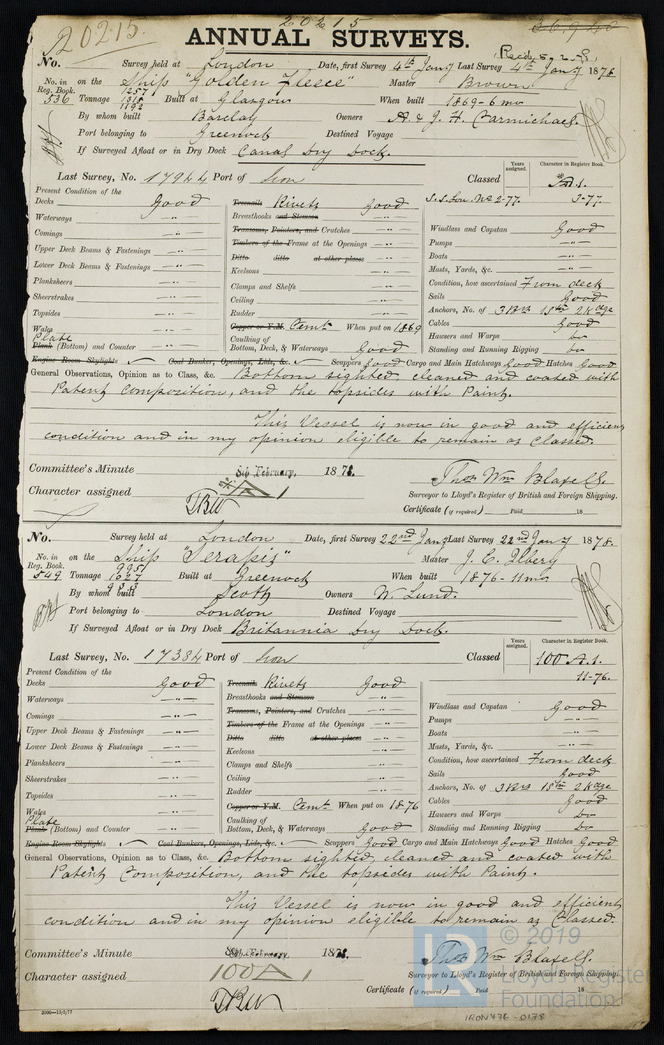 20215
20215.
36940
ANNUAL SURVEYS.
Recd 5.2.78
No. Survey held at London Date, first Survey 4th Jany Last Survey 4th Jany 1878
No. in Reg. Book. on the Ship "Golden Fleece" Master Brown
1257
536 Tonnage 1315 Built at Glasgow When built 1869-6 mo
1192
By whom built Barclay Owners A. & J. H. Carmichael.
Port belonging to Greenock Destined Voyage
If Surveyed Afloat or in Dry Dock Canal Dry Dock.
Last Survey, No. 17944 Port of Lon Classed Years assigned. Character in Register Book.
A.1.
S.S. Lon. No 2-77. 2-77
Present Condition of the
Decks Good Treenails Rivets Good
Waterways Breasthooks and Stemson Windlass and Capstan Good
Comings Transoms, Pointers, and Crutches Pumps
Upper Deck Beams & Fastenings Timbers of the Frame at the Openings Boats
Lower Deck Beams & Fastenings Ditto ditto at other places Masts, Yards, &c.
Planksheers Keelsons Condition, how ascertained From deck
Sheerstrakes Clamps and Shelfs Sails Good
Topsides Ceiling Anchors, No. of 3 Brs 1 Sth 2 Kdge
Wales Rudder Cables Good
Plate Copper or Y.M. Cemt When put on 1869 Hawsers and Warps Do
Plank (Bottom) and Counter Caulking of Bottom, Deck, & Waterways Good Standing and Running Rigging Do
Engine Room Skylights Coal Bunker, Openings, Lids, &c. Scuppers Good Cargo and Main Hatchways Good Hatches Good
General Observations, Opinion as to Class, &c. Bottom sighted, cleaned and coated with
Patent Composition, and the topsides with Paint.
This Vessel is now in good and efficient
condition and in my opinion eligible to remain as Classed.
Committee's Minute 8th February, 1878. Thos Wm Blaxell.
Character assigned A 1 Surveyor to Lloyd's Register of British and Foreign Shipping.
Certificate (if required) Paid 18
No. Survey held at London Date, first Survey 22nd Jany Last Survey 22nd Jany 1878.
No. in Reg. Book. on the Ship "Serapis" Master J. C. Ilbery
995
549 Tonnage 1027 Built at Greenock When built 1876-11 mo
933
By whom built Scott Owners W. Lund.
Port belonging to London Destined Voyage
If Surveyed Afloat or in Dry Dock Britannia Dry Dock.
Last Survey, No. 17384 Port of Lon Classed Years assigned. Character in Register Book.
100 A.1.
11-76.
Present Condition of the
Decks Good Treenails Rivets Good
Waterways Breasthooks and Stemson Windlass and Capstan Good
Comings Transoms, Pointers, and Crutches Pumps
Upper Deck Beams & Fastenings Timbers of the Frame at the Openings Boats
Lower Deck Beams & Fastenings Ditto ditto at other places Masts, Yards, &c.
Planksheers Keelsons Condition, how ascertained From deck
Sheerstrakes Clamps and Shelfs Sails Good
Topsides Ceiling Anchors, No. of 3 Brs 1 Sth 2 Kdge
Wales Rudder Cables Good
Plate Copper or Y.M. Cemt When put on 1876 Hawsers and Warps Do
Plank (Bottom) and Counter Caulking of Bottom, Deck, & Waterways Good Standing and Running Rigging Do
Engine Room Skylights Coal Bunkers, Openings, Lids, &c. Scuppers Good Cargo and Main Hatchways Good Hatches Good
General Observations, Opinion as to Class, &c. Bottom sighted, cleaned and coated with
Patent Composition, and the topsides with Paint.
This Vessel is now in good and efficient
condition and in my opinion eligible to remain as Classed.
Committee's Minute 8th February, 1878. Thos Wm Blaxell.
Character assigned 100 A 1 Surveyor to Lloyd's Register of British and Foreign Shipping.
Certificate (if required) Paid 18
2000—13/2/77
IRON476-0178
LR © 2019
Lloyd's Register
Foundation